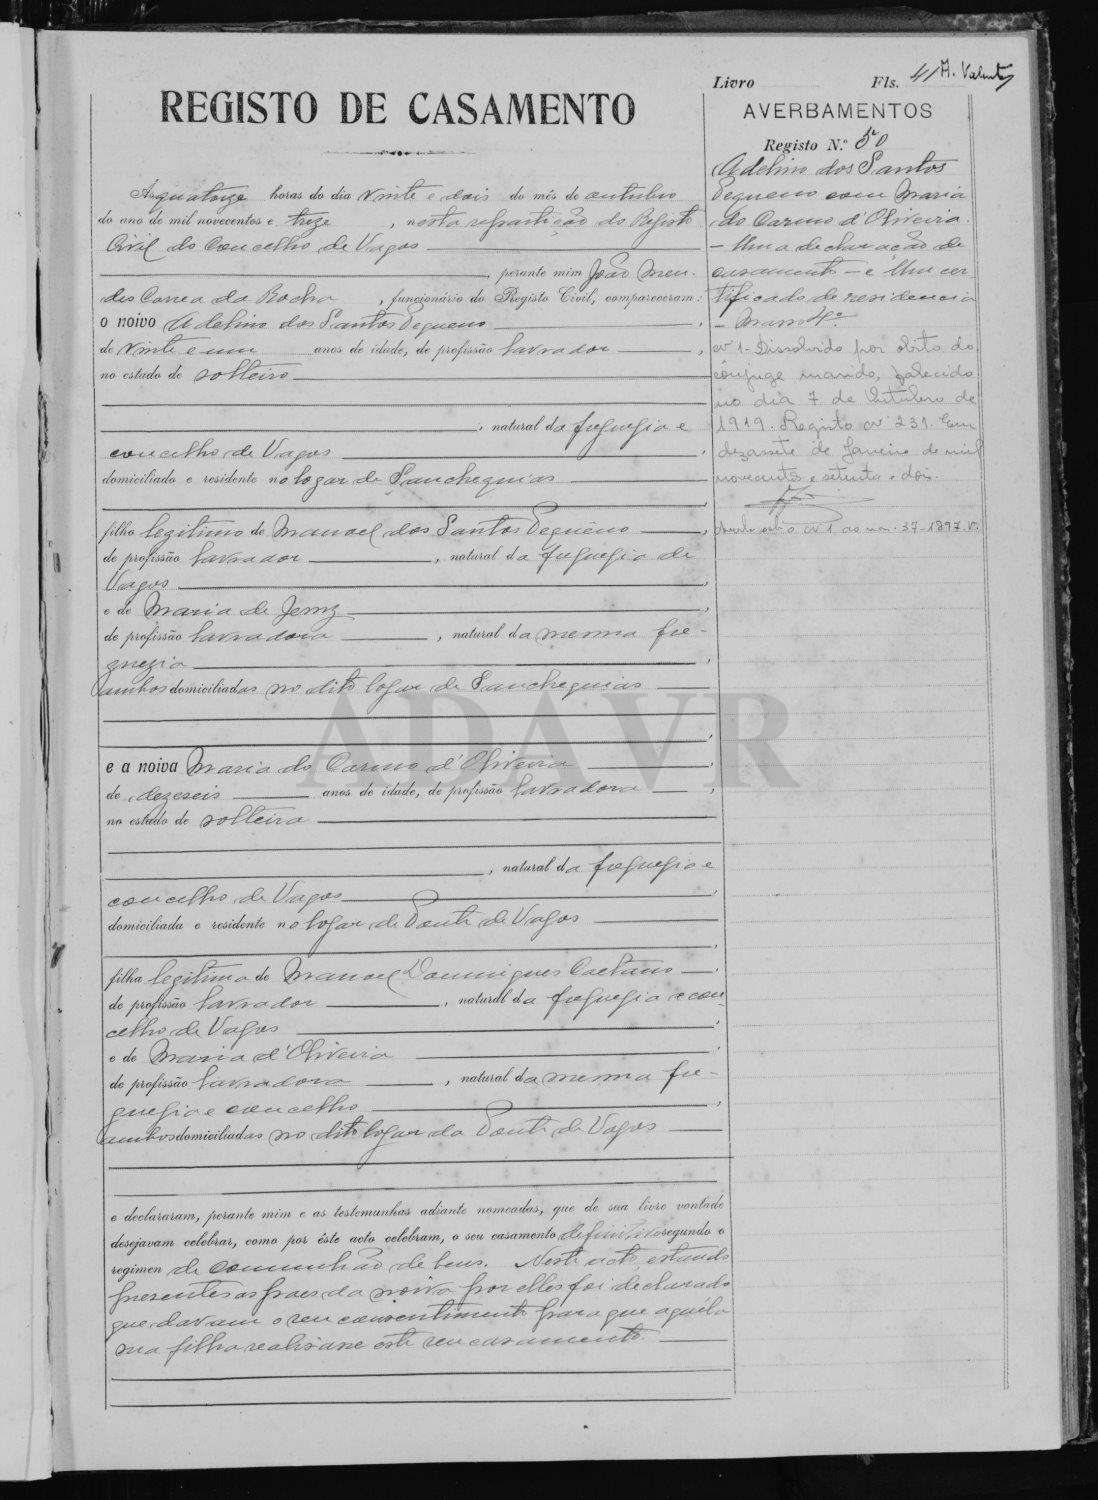 Livro Fls. 41 A. Valente
REGISTO DE CASAMENTO
AVERBAMENTOS
Registo N.º 50
Adelino dos Santos
Pequeno com Maria
do Carmo d'Oliveira.
— Uma declaração de
casamento — e Um cer-
tificado de residencia
— Masso 4º
nº 1 - Dissolvido por óbito do
cônjuge marido, falecido
no dia 7 de Outubro de
1919. Registo nº 231. Em
dezassete de Janeiro de mil
novecentos e setenta e dois.
nº 1 37-1897 v.
As quatorze horas do dia vinte e dois do mês de outubro
do ano de mil novecentos e treze, nesta repartição do Registo
Civil do Concelho de Vagos
, perante mim João Men-
des Correa da Rocha, funcionário do Registo Civil, compareceram:
o noivo Adelino dos Santos Pequeno,
de vinte e um anos de idade, de profissão lavrador,
no estado de solteiro
, natural da freguesia e
concelho de Vagos
domiciliado e residente no logar de Sanchequias
filho legitimo de Manoel dos Santos Pequeno,
de profissão lavrador, natural da freguesia de
Vagos,
e de Maria de Jesus,
de profissão lavradora, natural da mesma fre-
guezia,
ambos domiciliadas no dito logar de Sanchequias
e a noiva Maria do Carmo d'Oliveira,
de dezeseis anos de idade, de profissão lavradora,
no estado de solteira
, natural da freguesia e
concelho de Vagos,
domiciliada e residente no logar de Ponte de Vagos
filha legitima de Manoel Domingues Caetano,
de profissão lavrador, natural da freguesia e con-
celho de Vagos,
e de Maria d'Oliveira,
de profissão lavradora, natural da mesma fre-
guesia e concelho,
ambos domiciliadas no dito logar da Ponte de Vagos
e declararam, perante mim e as testemunhas adiante nomeadas, que de sua livre vontade
desejavam celebrar, como por êste acto celebram, o seu casamento definitivo segundo o
regimen de comunhão de bens. Neste acto, estando
presentes os paes da noiva por elles foi declarado
que davam o seu consentimento para que aquela
sua filha realisasse este seu casamento.
ADAVR